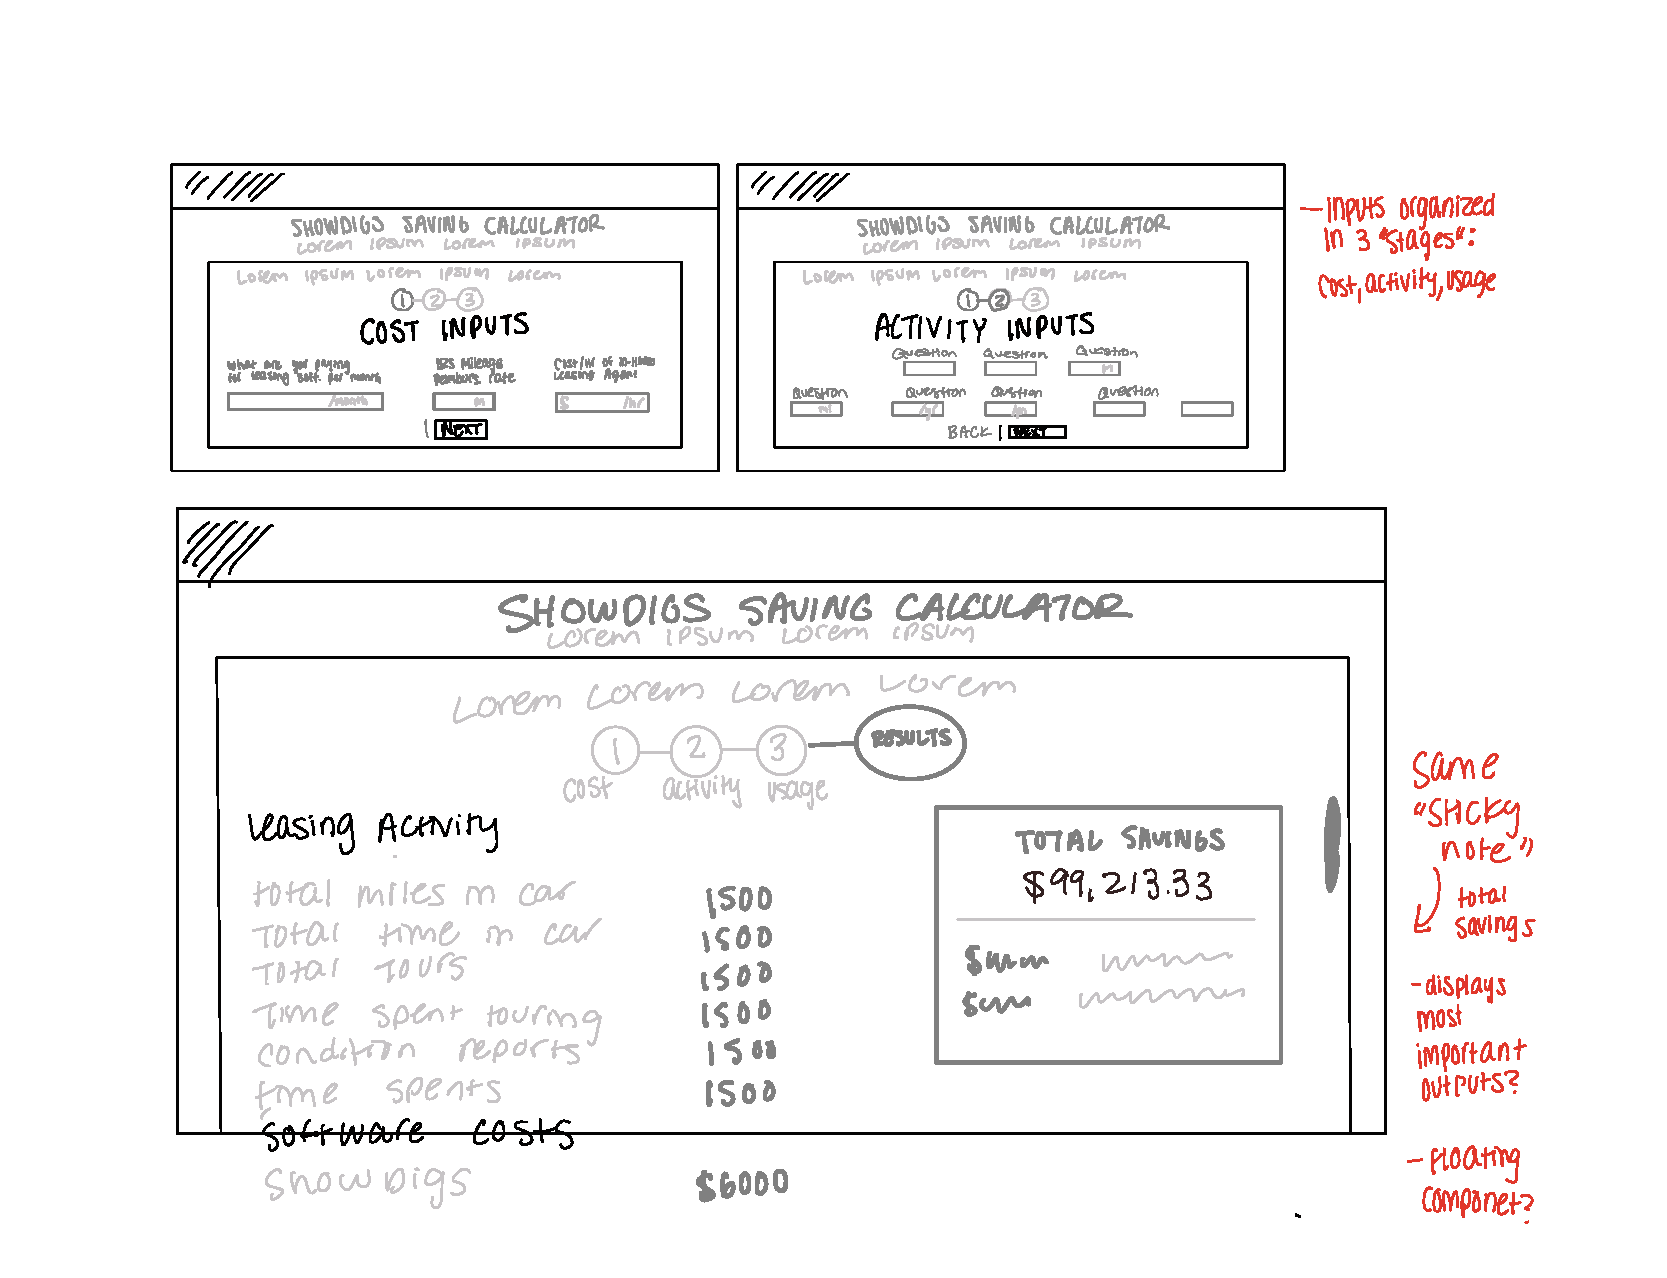 SHOWDIGS SAVING CALCULATOR
Lorem Ipsum Lorem Ipsum
Lorem Ipsum Lorem Ipsum Lorem
1 2 3
COST INPUTS
What are you paying for leasing soft. per month
/month
Mileage rate
m
Cost/Hr of In-House Leasing Agent
$ /hr
| NEXT
SHOWDIGS SAVING CALCULATOR
Lorem Ipsum Lorem Ipsum
Lorem Ipsum Lorem Ipsum Lorem
1 2 3
ACTIVITY INPUTS
Question Question Question
m
Question Question Question Question
BACK | NEXT
- Inputs organized
in 3 "stages":
cost, activity, usage
SHOWDIGS SAVING CALCULATOR
Lorem Ipsum Lorem Ipsum
Lorem Lorem Lorem Lorem
1 2 3 RESULTS
cost activity usage
Leasing Activity
total miles in car 1500
Total time in car 1500
Total Tours 1500
Time spent touring 1500
condition reports 1500
time spents 1500
software costs
ShowDigs $6000
TOTAL SAVINGS
$99,213.33
$
$
Same
"Sticky
note"
total
savings
- displays
most
important
outputs?
- floating
componet?